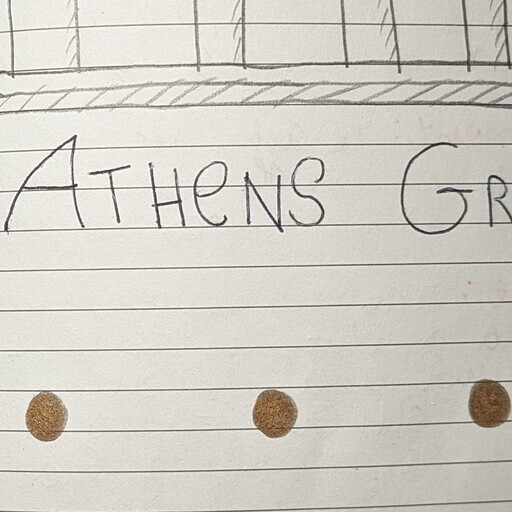 ATHeNS GR